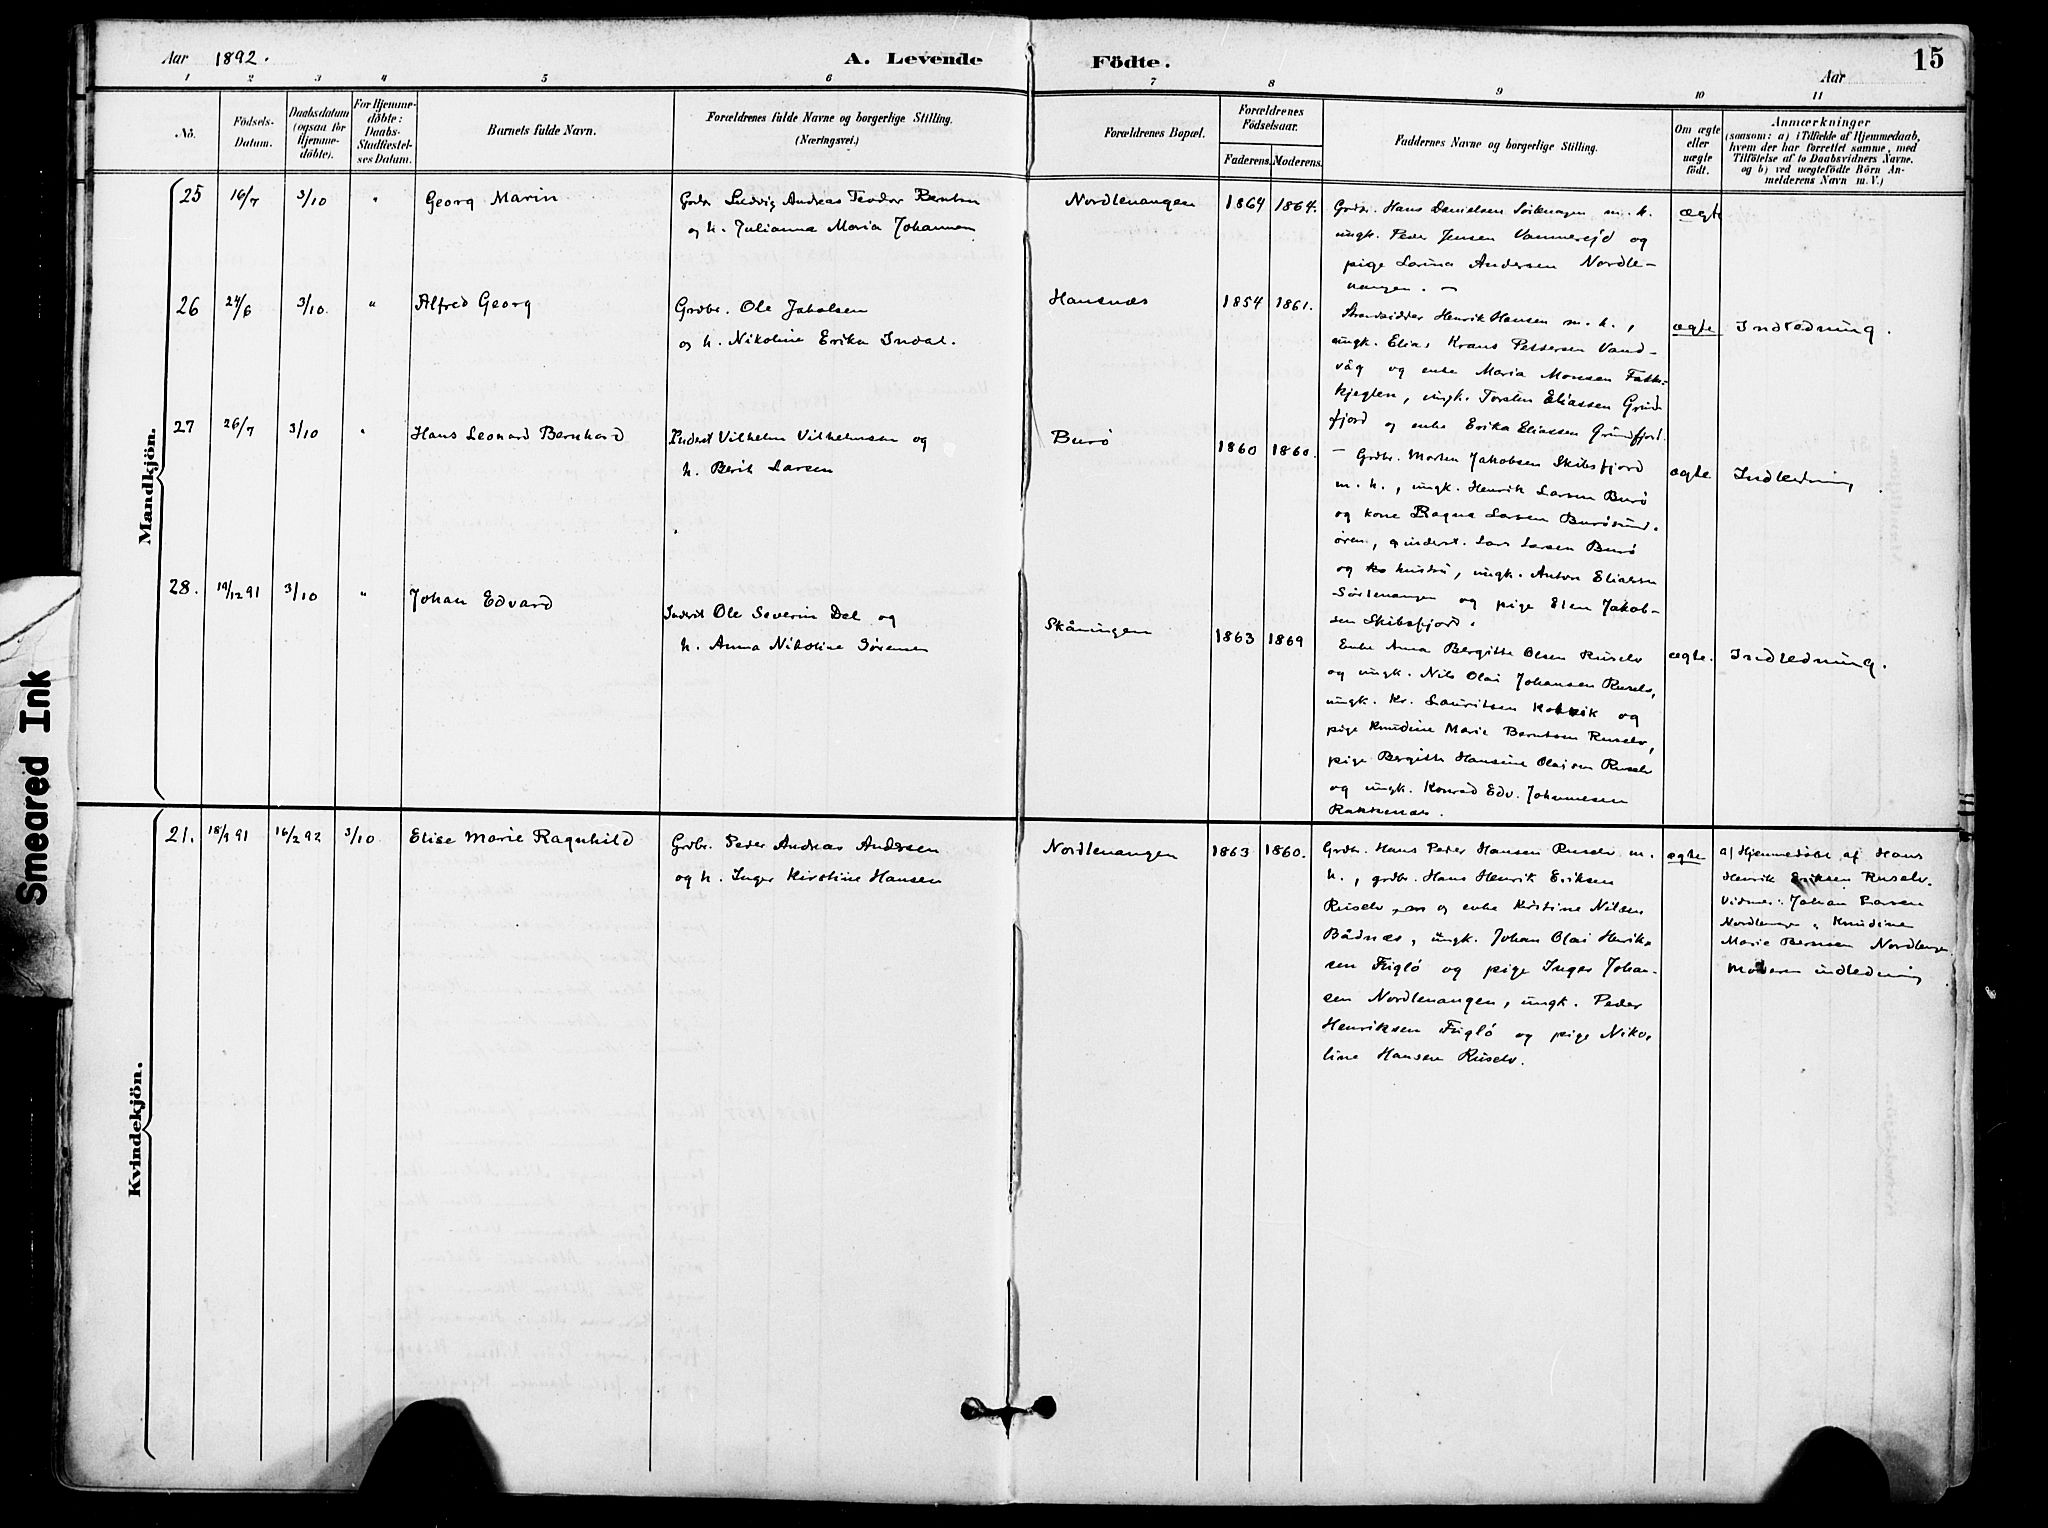 Aar 1892.
A. Levende Födte.
Aar
15
1 2 3 4 5 6 7 8 9 10 11
No.
Födsels-
Datum.
Daabsdatum
(ogsaa for
Hjemme-
döbte).
For Hjemme-
döbte:
Daabs-
Stadfæstel-
ses Datum.
Barnets fulde Navn.
Forældrenes fulde Navne og borgerlige Stilling.
(Næringsvei.)
Forældrenes Bopæl.
Forældrenes
Födselsaar.
Faderens. Moderens.
Faddernes Navne og borgerlige Stilling.
Om ægte
eller
uægte
födt.
Anmærkninger
(saasom: a) i Tilfælde af Hjemmedaab,
hvem der har forrettet samme, med
Tilföielse af to Daabsvidners Navne.
og b) ved uægtefödte Börn An-
melderens Navn m. V.)
Mandkjön.
25 16/7 3/10 " Georg Marin
Ludvig Andreas Teodor Berntsen
og h. Julianna Maria Johannsen
Nordlenangen 1864 1864.
Grdbr. Hans Danielsen m. h.
ungk. Peder Jensen og
pige Larina Andersen Nordle-
nangen. –
ægte
26 24/6 3/10 " Alfred Georg
Grdbr. Ole Jakobsen
og h. Nikoline Erika Indal.
Hansnæs 1854 1861.
Strandsidder Henrik Hansen m. h.,
ungk. Elias Krans Pettersen Vand-
våg og enke Maria Monsen
ungk. Torsten Eliassen
fjord og enke Erika Eliassen Grundfjord.
ægte Indledning.
27 26/7 3/10 " Hans Leonard Bernhard
Inderst Vilhelm Vilhelmsen og
h. Berit Larsen
Burö 1860 1860.
– Grdbr. Morten Jakobsen Skibsfjord
m. h., ungk. Henrik Larsen Burö
og kone Ragna Larsen Burösund.
inderst. Lars Larsen Burö
og hustru, ungk. Anton Eliassen
Sörlenangen og pige Elen Jakob-
sen Skibsfjord.
ægte Indledning.
28. 19/12 91 3/10 " Johan Edvard
Inderst Ole Severin Dal og
h. Anna Nikoline Sörensen
Skåningen 1863 1869
Enke Anna Bergitte Olsen Ruselv
og ungk. Nils Olai Johansen Ruselv,
ungk. Kr. Lauritsen og
pige Knudine Marie Berntsen Ruselv,
pige Bergitte Hansine Olaisen Ruselv
og ungk. Konrad Edv. Johannesen
ægte. Indledning.
Kvindekjön.
21. 18/9 91 16/2 92 3/10 Elise Marie Ragnhild
Grdbr. Peder Andreas Andersen
og h. Inger Kirstine Hansen
Nordlenangen 1863 1860.
Grdbr. Hans Peder Hansen Ruselv m.
h., grdbr. Hans Henrik Eriksen
Ruselv og enke Kristine Nilsen
Bådnæs, ungk. Johan Olai Henrik-
sen Fuglö og pige Inger Johan-
sen Nordlenangen, ungk. Peder
Henriksen Fuglö og pige Niko-
line Hansen Ruselv.
ægte
a/ Hjemmedöbt af Hans
Henrik Eriksen Ruselv.
Vidner: Johan Larsen
Knudine
Marie Bernsen
Moderen indledning
Smeared Ink